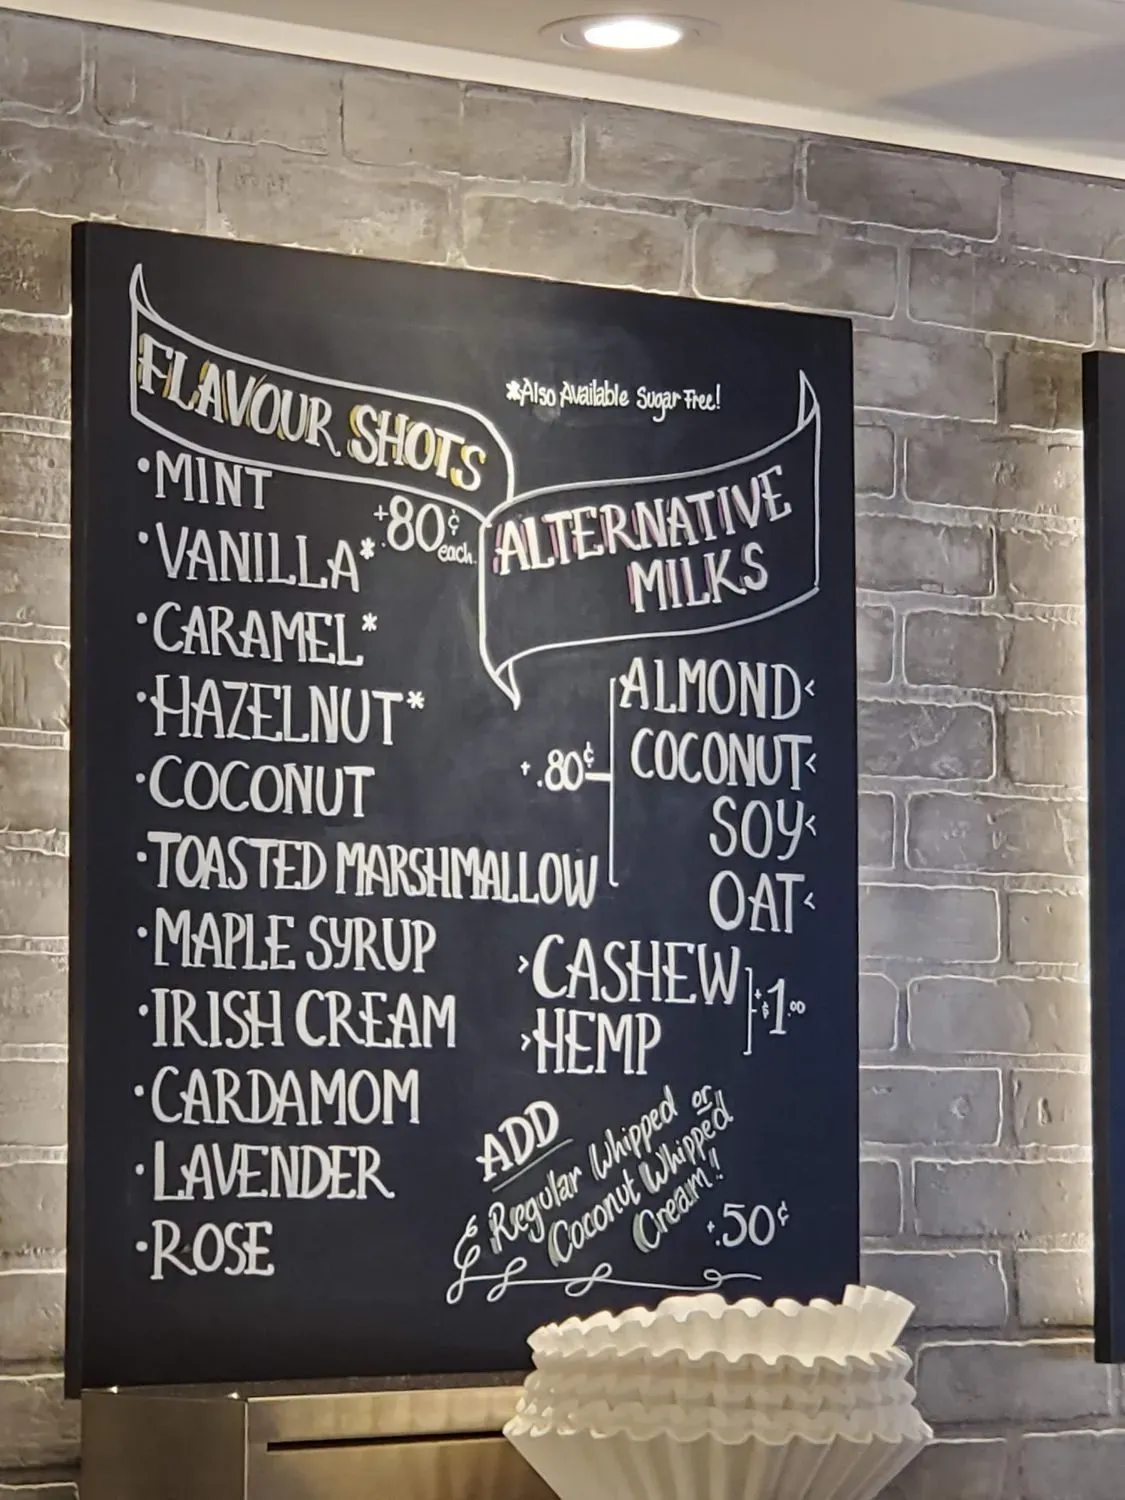 FLAVOUR SHOTS
*Also Available Sugar Free!
+.80¢ each.
·MINT
·VANILLA*
·CARAMEL*
·HAZELNUT*
·COCONUT
·TOASTED MARSHMALLOW
·MAPLE SYRUP
·IRISH CREAM
·CARDAMOM
·LAVENDER
·ROSE
ALTERNATIVE
MILKS
ALMOND<
COCONUT<
SOY<
OAT<
+.80¢
>CASHEW
>HEMP
+$1.00
ADD
Regular Whipped or
Coconut Whipped
Cream!!
+.50¢